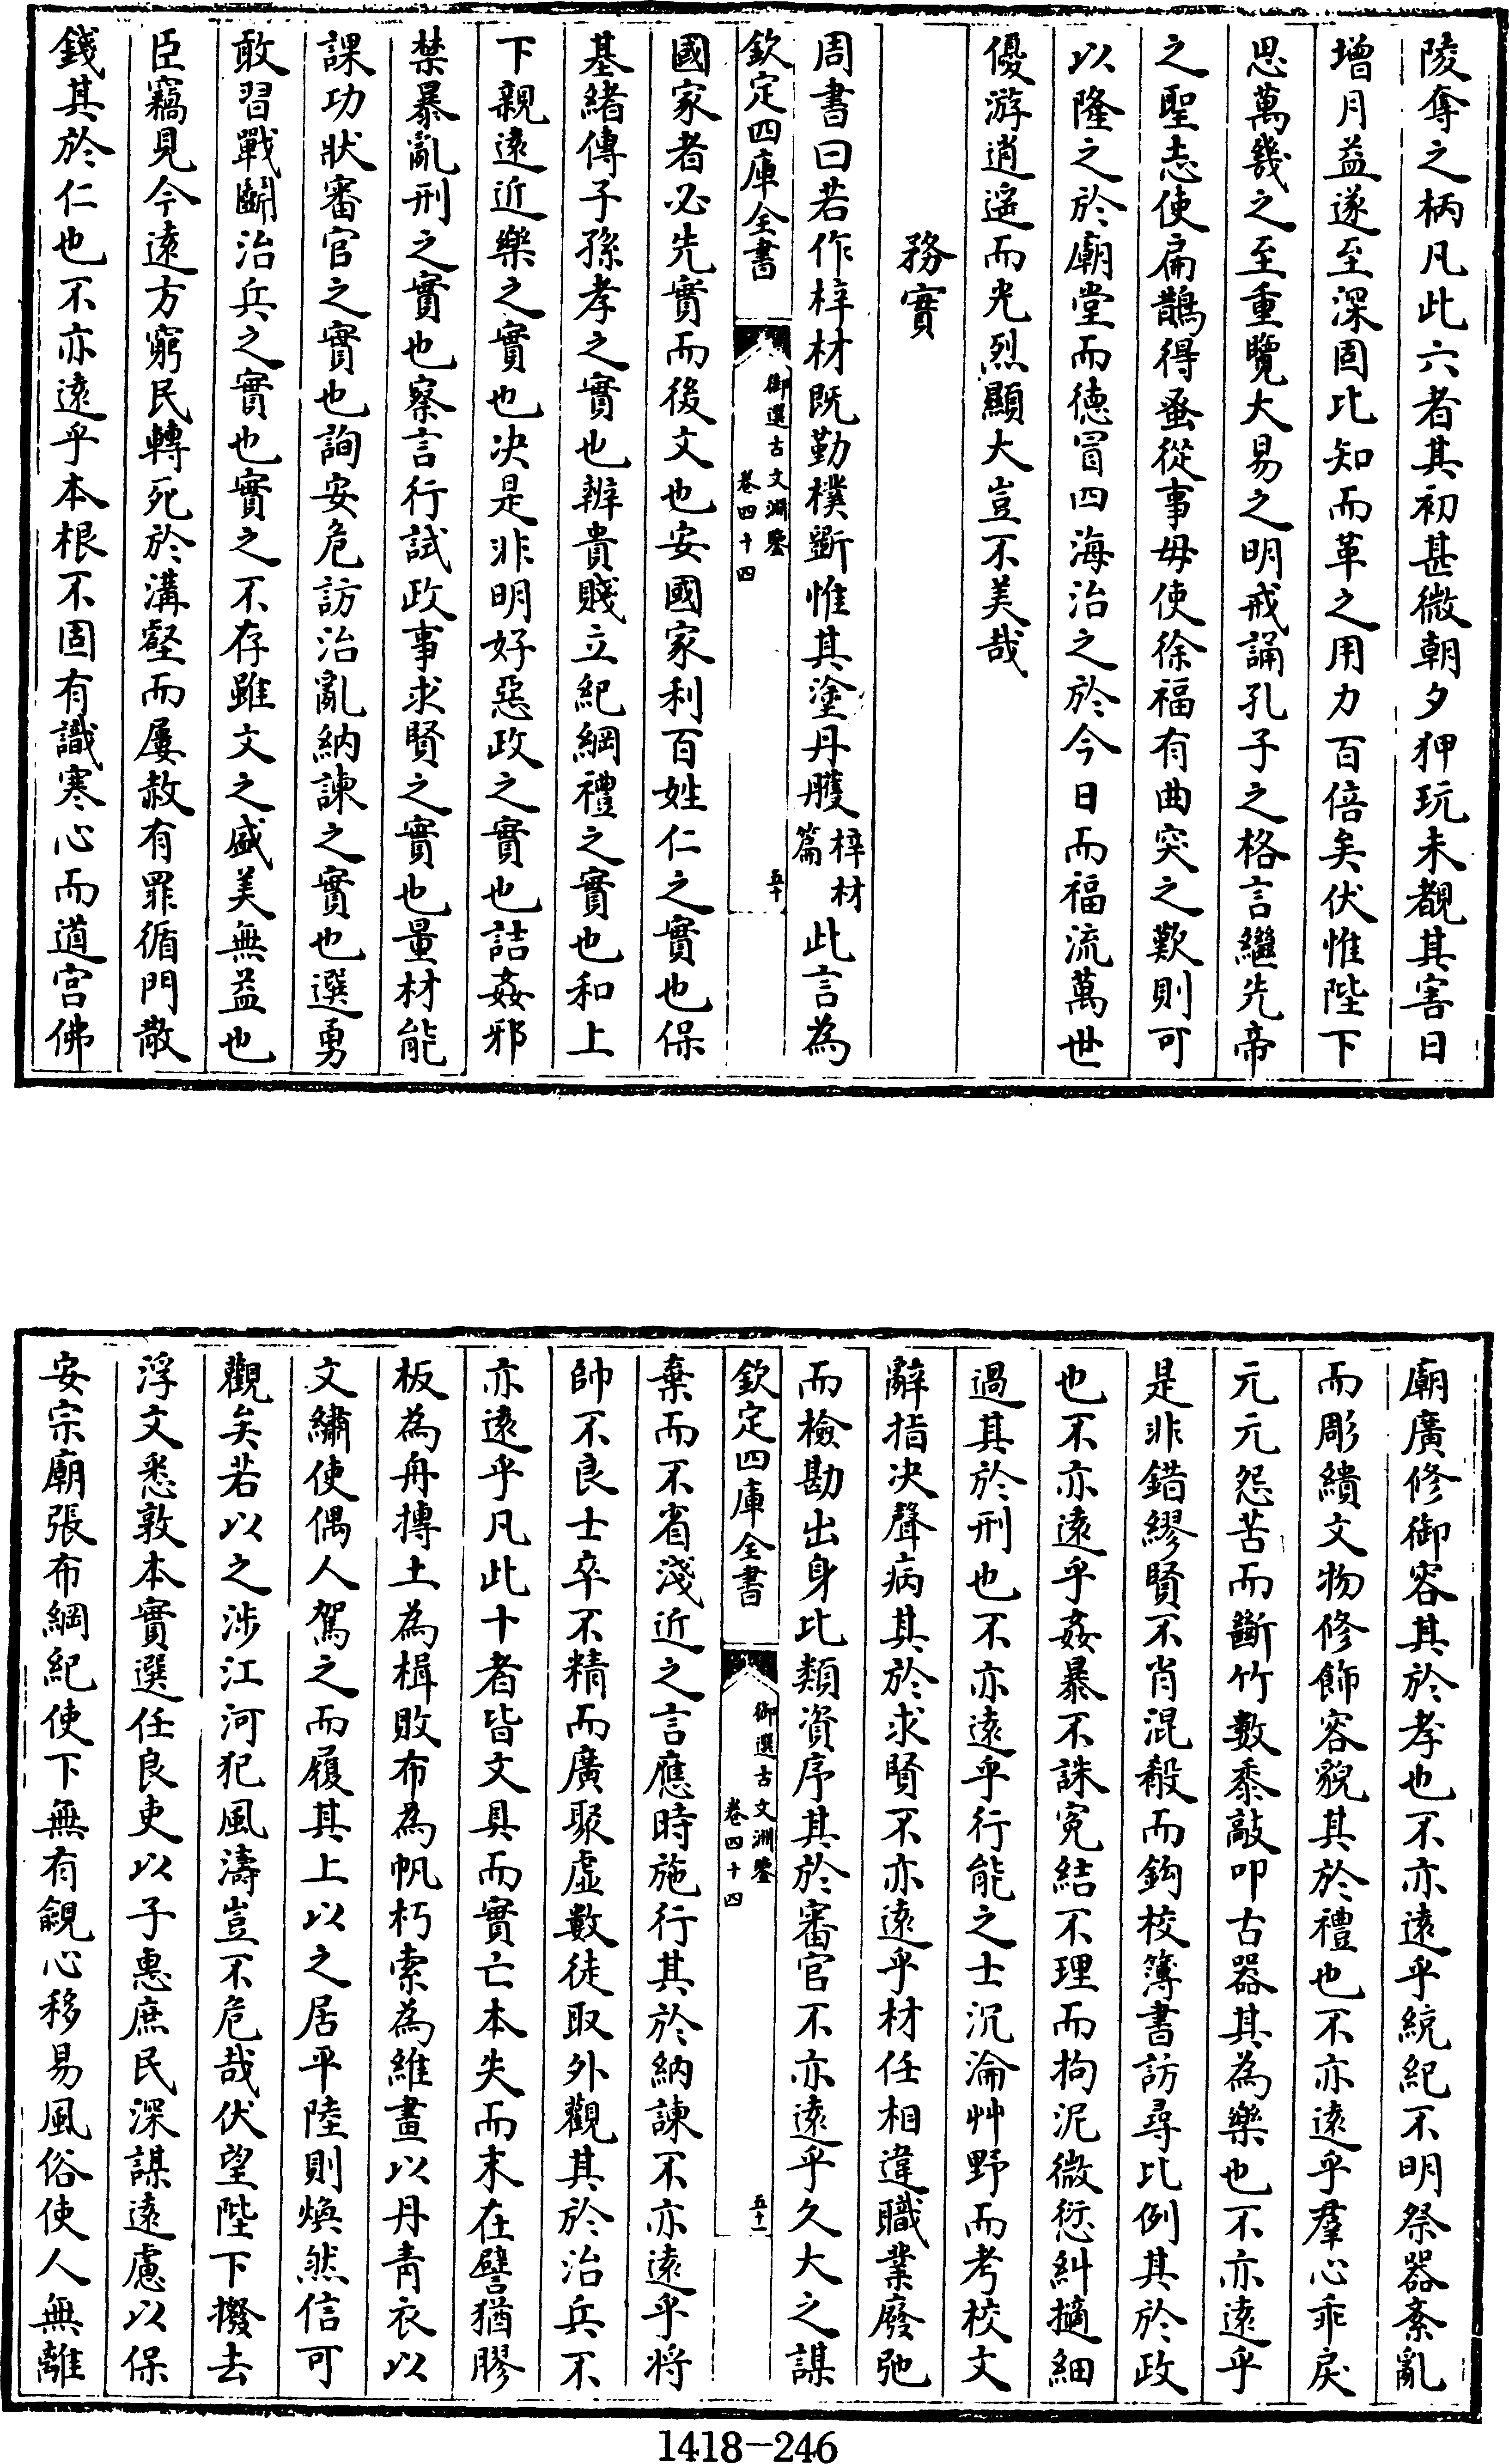 陵奪之柄凡此六者其初甚微朝夕狎玩未覩其害日
增月益遂至深固比知而革之用力百倍矣伏惟陛下
思萬幾之至重覽大易之明戒誦孔子之格言繼先帝
之聖志使扁鵲得蚤從事毋使徐福有曲突之歎則可
以隆之於廟堂而德冒四海治之於今日而福流萬世
優游逍遥而光烈顯大豈不美哉
務實
周書曰若作梓材既勤樸斵惟其塗丹雘梓材篇此言為
欽定四庫全書
御選古文淵鑒
卷四十四
五十
國家者必先實而後文也安國家利百姓仁之實也保
基緒傳子孫孝之實也辨貴賤立紀綱禮之實也和上
下親遠近樂之實也决是非明好惡政之實也詰姦邪
禁暴亂刑之實也察言行試政事求賢之實也量材能
課功狀審官之實也詢安危訪治亂納諫之實也選勇
敢習戰鬭治兵之實也實之不存雖文之盛美無益也
臣竊見今遠方窮民轉死於溝壑而屢赦有罪循門散
錢其於仁也不亦遠乎本根不固有識寒心而道宫佛
廟廣修御容其於孝也不亦遠乎統紀不明祭器紊亂
而彫繢文物修飾容貌其於禮也不亦遠乎羣心乖戾
元元怨苦而斷竹數黍敲叩古器其為樂也不亦遠乎
是非錯繆賢不肖混殽而鈎校簿書訪尋比例其於政
也不亦遠乎姦暴不誅寃結不理而拘泥微愆糾擿細
過其於刑也不亦遠乎行能之士沉淪艸野而考校文
辭指决聲病其於求賢不亦遠乎材任相違職業廢弛
而檢勘出身比類資序其於審官不亦遠乎久大之謀
欽定四庫全書
御選古文淵鑒
卷四十四
五十一
棄而不省淺近之言應時施行其於納諫不亦遠乎將
帥不良士卒不精而廣聚虛數徒取外觀其於治兵不
亦遠乎凡此十者皆文具而實亡本失而末在譬猶膠
板為舟摶土為楫敗布為帆朽索為維畫以丹青衣以
文繡使偶人駕之而履其上以之居平陸則煥然信可
觀矣若以之涉江河犯風濤豈不危哉伏望陛下撥去
浮文悉敦本實選任良吏以子惠庶民深謀遠慮以保
安宗廟張布綱紀使下無有覦心移易風俗使人無離
1418-246